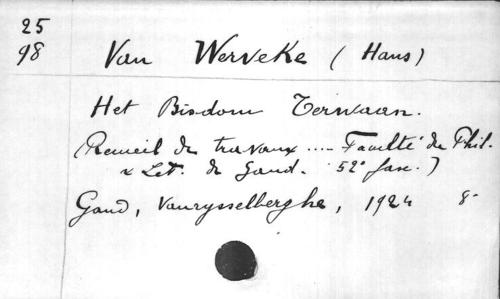 25
98
Van Werveke (Hans)
Het Bisdom Terwaan.
(Recueil de travaux .... Faculté de Phil.
& Let. de Gand. 52e fasc.)
Gand, Vanrysselberghe, 1924 8°